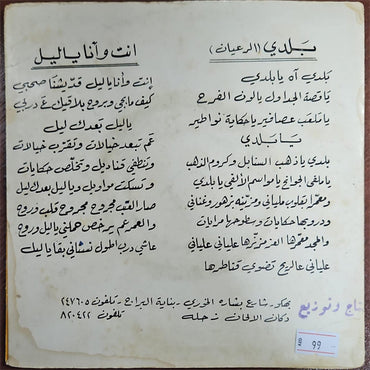 بَلدي (الرعيان)
بَلدي آه يا بلدي
يا قصة الجداول يا لون الفرح
يا ملعب عصافير يا حكاية نواطير
يا بَلدي
بلدي يا ذهب السنابل وكروم الذهب
يا ملفى الجوانح يا مواسم الألفي يا بلدي
ومعمّرا بقلوب ملياني ومزيّنه بزهور وغناني
ودروبها حكايات وسطوحها مرايات
واللي معمّرها العز مزنّرها علياني علياني
علياني عالريح تضوي قناطرها
انت وأنا يا ليل
إنت وأنا يا ليل قدّيشنا صحبي
كيف ما بجي وبروح بلاقيك ع دربي
يا ليل بَعدك ليل
عَم تبعد خيالات وتقرّب خيالات
وتطفي قناديل وتخلّص حكايات
وتسكت مواويل ويا ليل بعدك ليل
صار القلب مجروح مجروح قلب وروح
والعمر عم يرخص حملني يا ليل وروح
عاشي درب الطول نشاني بقا يا ليل
بهكو - شارع بشاره الخوري - بناية البراج - تلفون ٢٤٧٦٠٥
دكان الالحان - زحله تلفون ٨٢٠٤٢٢
تاج وتوزيع
99